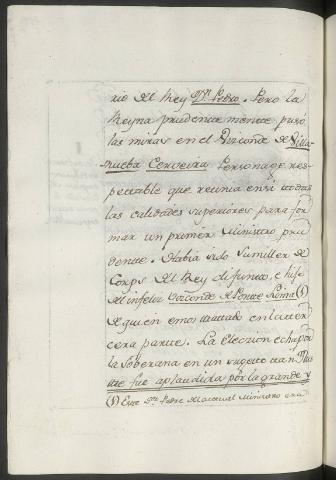 rio del Rey Dn. Pedro. Pero la
Reyna prudente mente puso
las miras en el Vizconde de Villa
nueba Cerveira Personage res-
pectable que reunia en si todas
las calidades superiores para for
mar un primer Ministro pru
dente. Habia sido Sumiller de
Corps del Rey difunto, e hijo
del infeliz Vizconde de Ponte Lima (1)
de quien emos tratado en la ter
cera parte. La Eleccion echa por
la Soberana en un sugeto tan
fue aplaudida por la grande y
(1) Este Padre del actual Ministro era